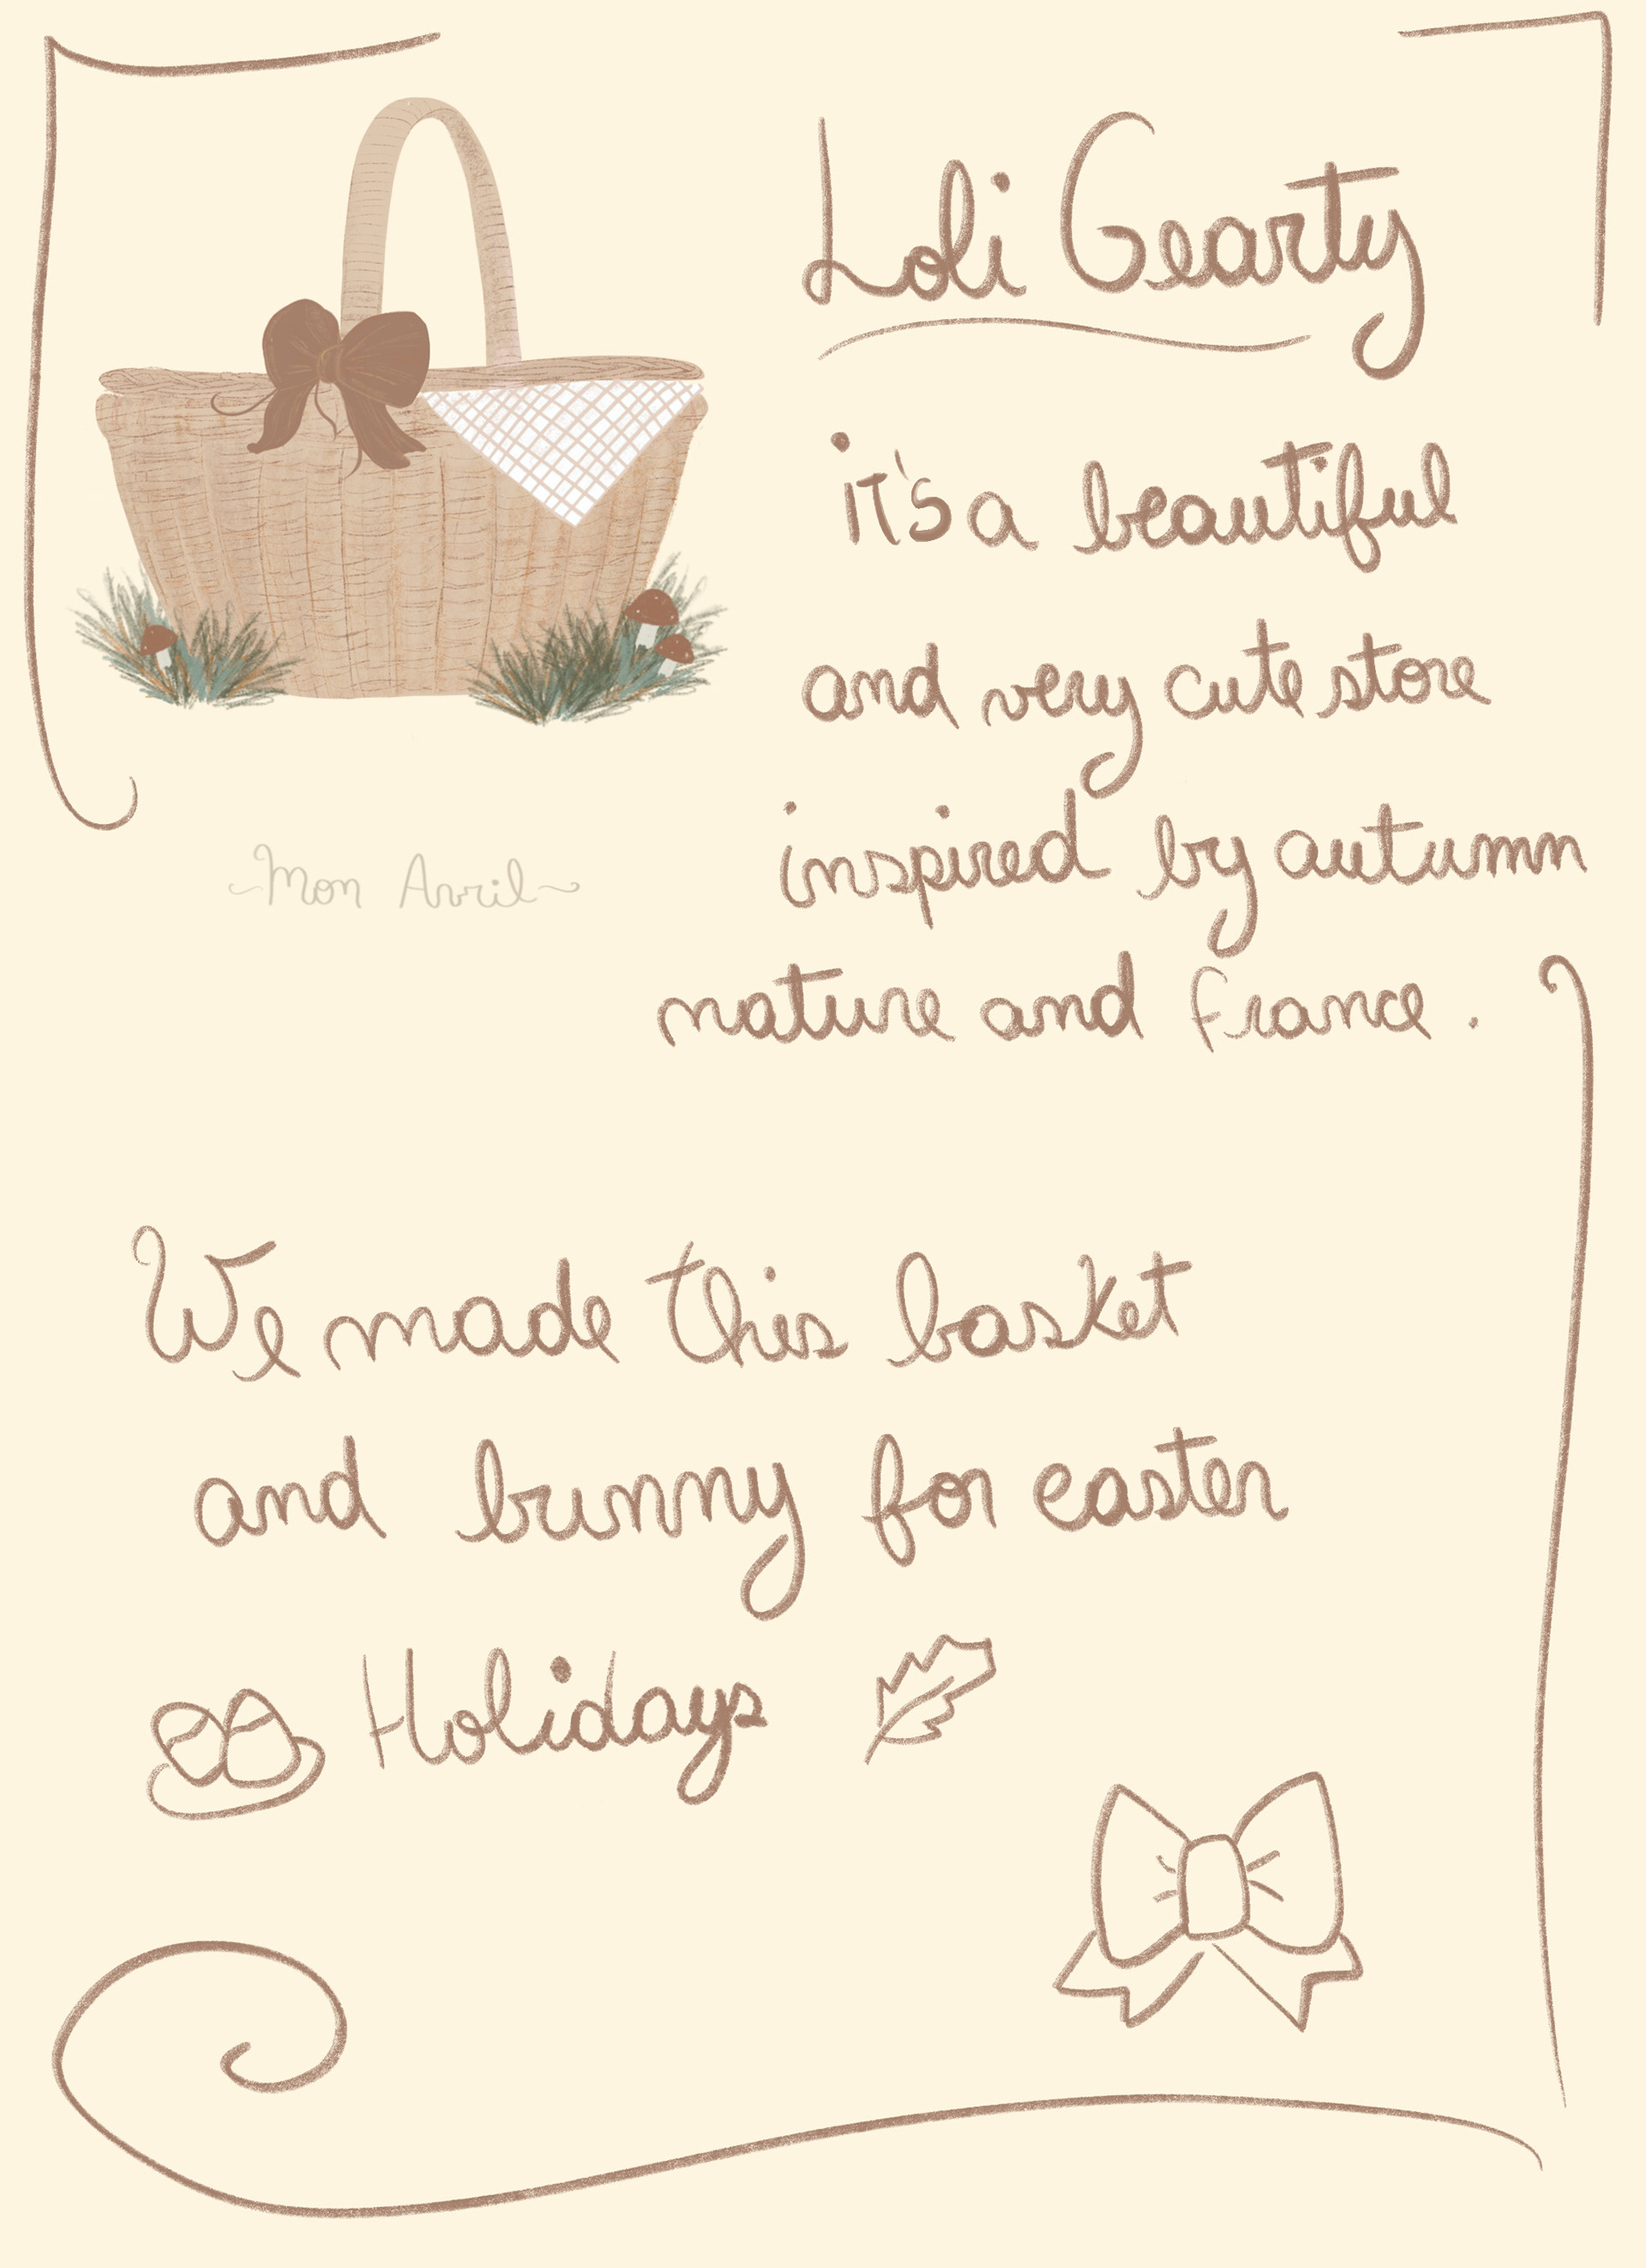 Loli Gearty
it's a beautiful
and very cute store
inspired by autumn
nature and France.
~Mon Avril~
We made this basket
and bunny for easter
Holidays